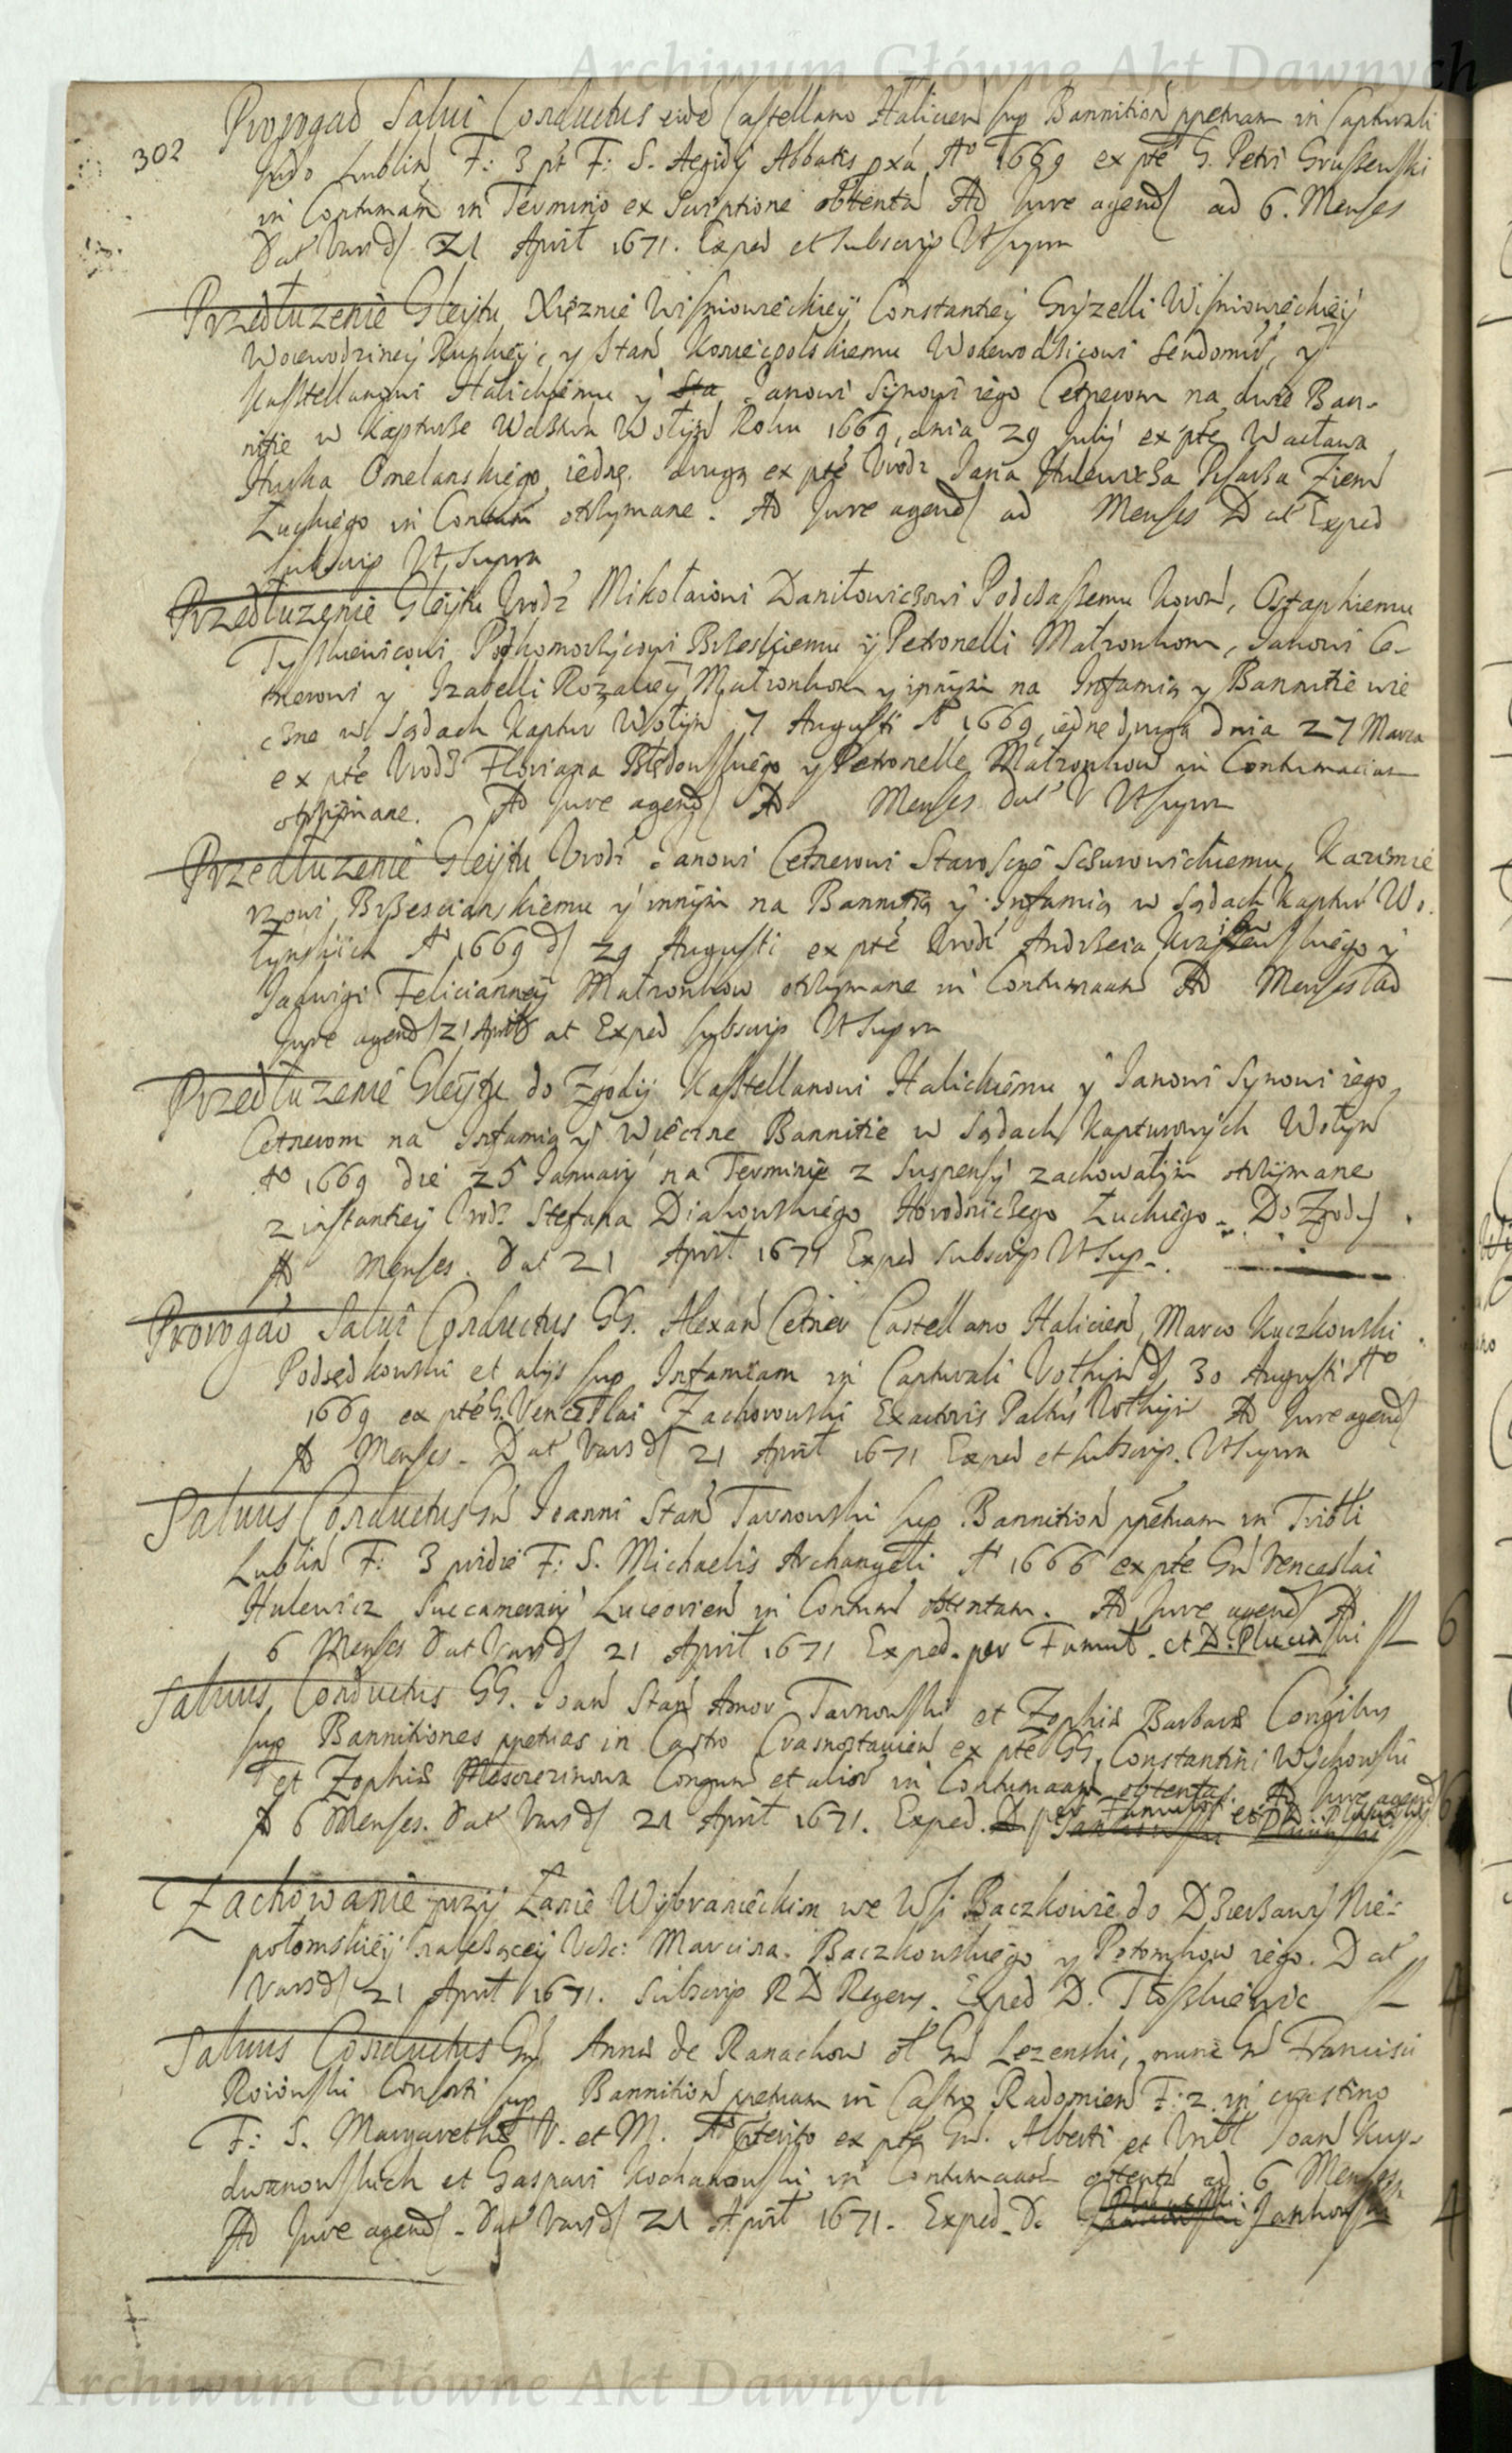 Archiwum Główne Akt Dawnych
302
Prorogaō Salui Conductus eidē Castellano Halicień sup Bannition ppetuam in Capturali
Judo Lublin F: 3 pt F: S. Aegidij Abbatis pxa Aº 1669 ex pte G. Petri Gruszewski
in Contumam in Termino ex Scriptione obtenta Ad Jure agend ad 6. Menses
Dat Vars d 21 April 1671. Exped et Subscrip Vt supra
Przedłuzenie Gleytu Xięznie Wiśniowieckiey Constantiey Gryzelli Wiśniowieckiey
Woiewodziney Ruskiey, y Stań Koniecpolskiemu Woiewodzicowi Sendomir, y
Kasztellanowi Halickiemu y Sta Janowi Synowi iego Cetnerom na dwie Ban-
nitie w Kapturze Wołyń Roku 1669, dnia 29 July ex pte Wacława
Hucka Omelanskiego iednę. drugą ex pte Vrodz Jana Hulewicza Pisarza Ziem
Łuckiego in Contum otrzymane. Ad Jure agend ad Menses Dat Exped
Subscrip Vt Supra
Przedłuzenie Gleytu Vrodz Mikołaiowi Daniłowiczowi Podczaszemu Kowń, Ostaphiemu
Tyszkiewicowi Podkomorzycowi Brzeskiemu y Petronelli Małzonkom, Janowi Ce-
tnerowi y Izabelli Rozaliey Małzonkom y innym na Infamią y Bannitie wie
czne w Sądach Kaptur Wołyń 7 Augusti Aº 1669, iednę drugą dnia 27 Marca
ex pte Vrodz Floriana Błędowskiego y Petronelle Małzonkow in Contumaciam
otrzymane. Ad Jure agend Ad Menses Dat V Vt supra
Przedłuzenie Gleytu Vrodz Janowi Cetnerowi Starosćie Sczurowickiemu, Kazimie
rzowi Brzesćianskiemu y innym na Bannitią y Infamią w Sądach Kaptur Wo-
łynskich Aº 1669 d 29 Augusti ex pte Vrodz Andrzeia y
Jadwigi Felicianney Małzonkow otrzymane in Contumaciam Ad Menses Ad
Jure agend 21 April Dat Exped Subscrip Vt Supra
Przedłuzenie Gleytu do Zgody Kasztellanowi Halickiemu y Janowi Synowi iego,
Cetnerom na Infamią y Wieczne Bannitie w Sądach Kapturowych Wołyń
Aº 1669 die 25 January na Terminie z Suspensy zachowałym otrzymane
z instantiey Vrodz Stefana Diakowskiego Horodniczego Łuckiego. Do Zgody
Ad Menses. Dat 21 April 1671 Exped Subscrip Vt Sup.
Prorogaō Salui Conductus GG. Alexań Cetner Castellano Halicień, Marco Kuczkowski
Podsędkowski et alys sup Infamiam in Capturali Vołhyń d 30 Augusti Aº
1669 ex pte G. Venceslai Zachorowski Exactoris Paltus Vołhyn Ad Jure agend
Ad Menses. Dat Vars d 21 April 1671 Exped et Subscrip. Vt supra
Saluus Conductus Gń Joanni Stań Tarnowski sup Bannition ppetuam in Tribli
Lublin F: 3 pridie F: S. Michaelis Archangeli Aº 1666 ex pte Gń Venceslai
Hulewicz Succamerary Luceorień in Contum obtentam. Ad Jure agend Ad
6 Menses Dat Vars d 21 April 1671 Exped. per Famul. et D. Plucinski 6
Saluus Conductus GG. Joań Stań Amor Tarnowski et Zophiæ Barbaræ Congibus
sup Bannitiones ppetuas in Castro Crasnostavień ex pte GG. Constantini Wychowski
et Zophiæ Congum et alior in Contumaciam obtentas. Ad Jure agend
Ad 6 Menses. Dat Vars d 21 April 1671. Exped. per Famulos et D. 6
Zachowanie przy Łanie Wybranieckim we Wsi Baczkowie do Dzierzawy Nie-
połomskiey nalezącey Vcc: Marcina Baczkowskiego y Potomkow iego. Dat
Vars d 21 April 1671. Subscrip R D Regens. Exped D. 4
Saluus Conductus Gń Annæ de Ranachow ol Gń Lezenski, nunc Gń Francisci
Roiowski Consorti sup Bannition ppetuam in Castro Radomień F: 2. in crastino
F: S. Margarethæ V. et M. Aº pterito ex pte Gń. Alberti et Joań Kuy-
dwanowskich et Gaspari Kochanowski in Contumaciam obtentā ad 6 Menses
Ad Jure agend. Dat Vars d 21 April 1671. Exped. D. Jankowski 4
Archiwum Główne Akt Dawnych